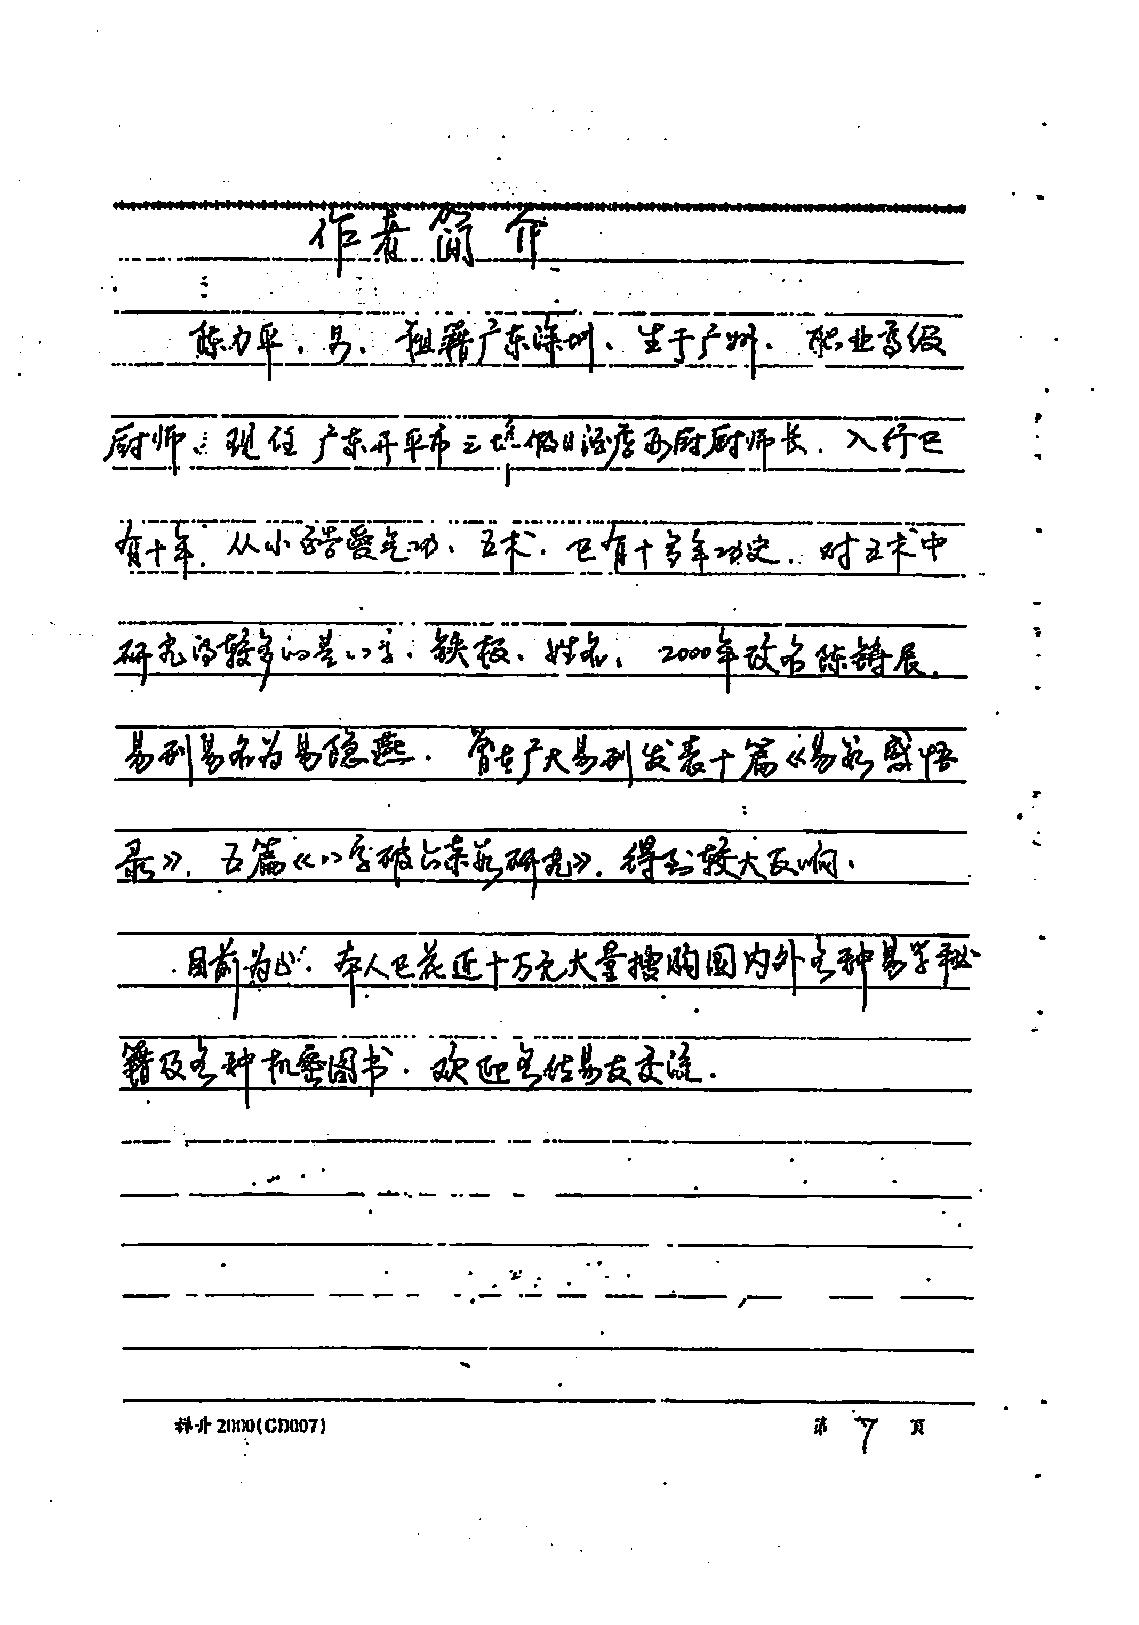 作者简介
陈力平、男、祖籍广东深圳、生于广州、职业高级
厨师、现任广东开平市三埠假日酒店西厨厨师长、入行已
有十年、从小酷爱气功、五术、已有十多年功史、对五术中
研究得较多的是八字、铁板、姓名、2000年改名陈铸展、
易刊易名为易隐燕、曾在广大易刊发表十篇《易 感悟
录》、五篇《八字 研究》、得到较大反响、
目前为止、本人已花近十万元大量搜购国内外各种易学秘
籍及各种机密图书、欢迎各位易友交流、
2000(CD007)
第 7 页